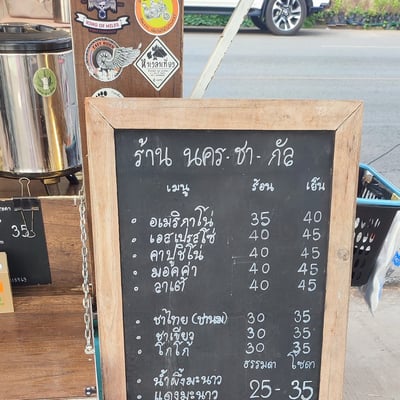 ร้าน นคร-ชา-กัล
เมนู ร้อน เย็น
· อเมริกาโน่ 35 40
· เอสเปรสโซ่ 40 45
· คาปูชิโน่ 40 45
· มอคค่า 40 45
· ลาเต้ 40 45
· ชาไทย (ชานม) 30 35
· ชาเขียว 30 35
· โกโก้ 30 35
ธรรมดา โซดา
· น้ำผึ้งมะนาว 25 - 35
· แดงมะนาว
35